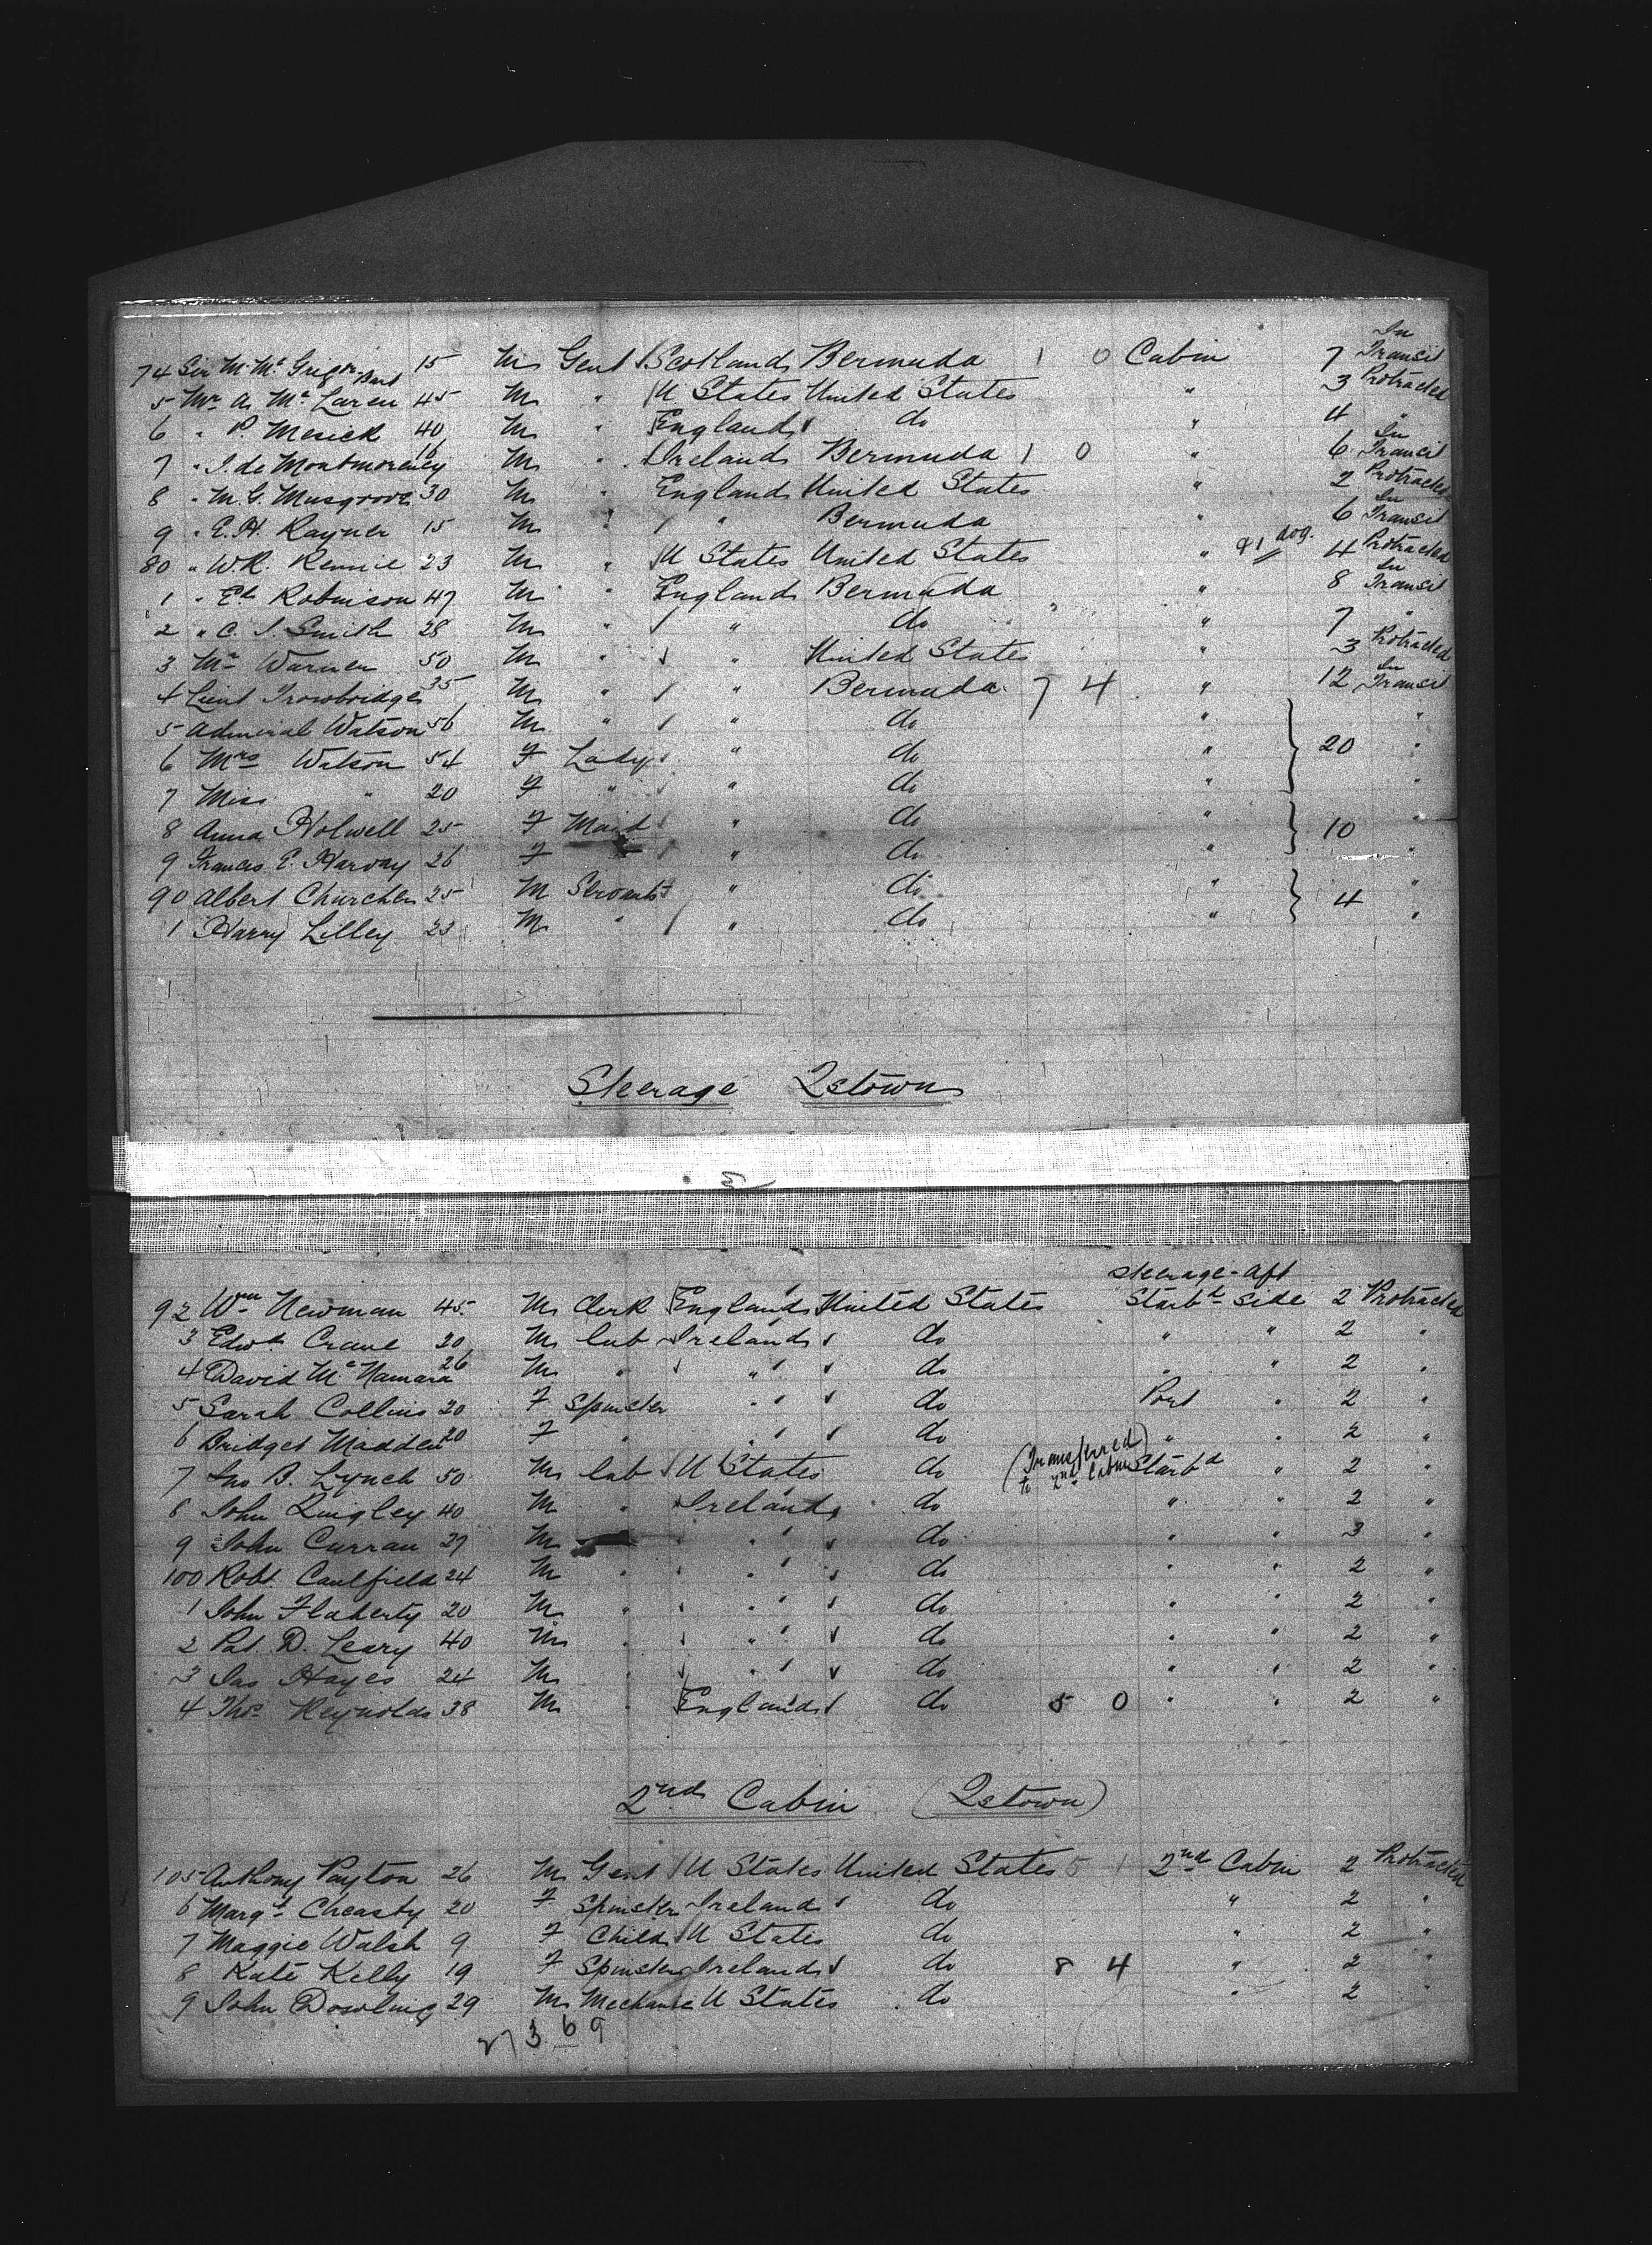 74 Sir M. McGrigor Bart 15 M Gent Scotland Bermuda 1 0 Cabin 7 In Transit
5 Mr A. McLaren 45 M " U States United States " 3 Protracted
6 " P. Mesick 40 M " England do " 4 "
7 " J. de Montmorency 16 M " Ireland Bermuda 1 0 " 6 In Transit
8 " M. G. Musgrove 30 M " England United States " 2 Protracted
9 " E. H. Rayner 15 M " " Bermuda " 6 In Transit
80 " W. R. Rennie 23 M " U States United States " & 1 dog. 4 Protracted
1 " Ed Robinson 47 M " England Bermuda " 8 In Transit
2 " C. J. Smith 28 M " " do " 7 "
3 Mr Warner 50 M " " United States " 3 Protracted
4 Lieut Trowbridge 35 M " " Bermuda 7 4 " 12 In Transit
5 Admiral Watson 56 M " " do " "
6 Mrs Watson 54 F Lady " do " 20 "
7 Miss " 20 F " " do " "
8 Anna Holwell 25 F Maid " do " 10 "
9 Frances E. Harvay 26 F " do " "
90 Albert Churcher 25 M Servants " do " 4 "
1 Harry Lilley 23 M " " do " "
Steerage Qstown
3
Steerage - Aft
92 Wm Newman 45 M Clerk England United States Starbd Side 2 Protracted
3 Edwd Crane 20 M lab Ireland do " " 2 "
4 David McNamara 26 M " " do " " 2 "
5 Sarah Collins 20 F Spinster " do Port " 2 "
6 Bridget Madden 20 F " " do " " 2 "
7 Jno B. Lynch 50 M lab U States do (Transferred to 2nd Cabin) Starbd " 2 "
8 John Quigley 40 M " Ireland do " " 2 "
9 John Curran 27 M " do " " 3 "
100 Robt Caulfield 24 M " " do " " 2 "
1 John Flaherty 20 M " " do " " 2 "
2 Pat D. Leary 40 M " " do " " 2 "
3 Jas Hayes 24 M " " do " " 2 "
4 Thos Reynolds 38 M " England do 5 0 " " 2 "
2nd Cabin (Qstown)
105 Anthony Payton 26 M Gent U States United States 5 1 2nd Cabin 2 Protracted
6 Margt Cheasty 20 F Spinster Ireland do " 2 "
7 Maggie Walsh 9 F Child U States do " 2 "
8 Kate Kelly 19 F Spinster Ireland do 8 4 " 2 "
9 John Dowling 29 M Mechanic U States do " 2 "
27 3 6 9